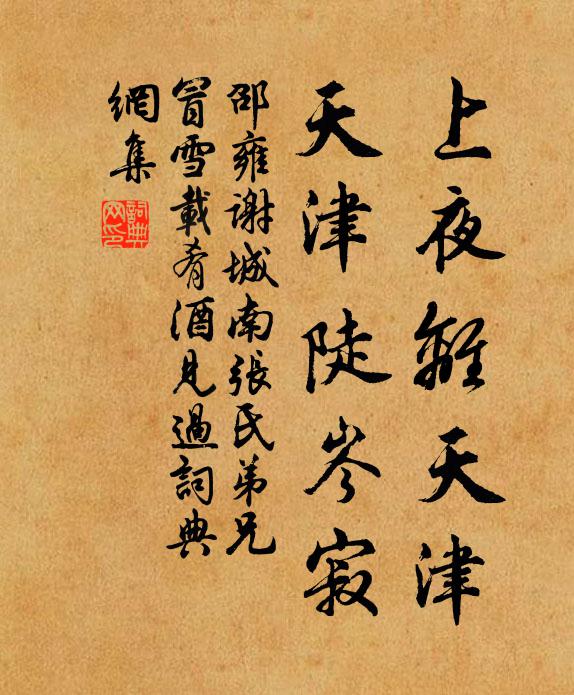 上夜離天津
天津陡岑寂
邵雍謝城南張氏弟兄
冒雪載肴酒見過詞典
網集
詞典
网印